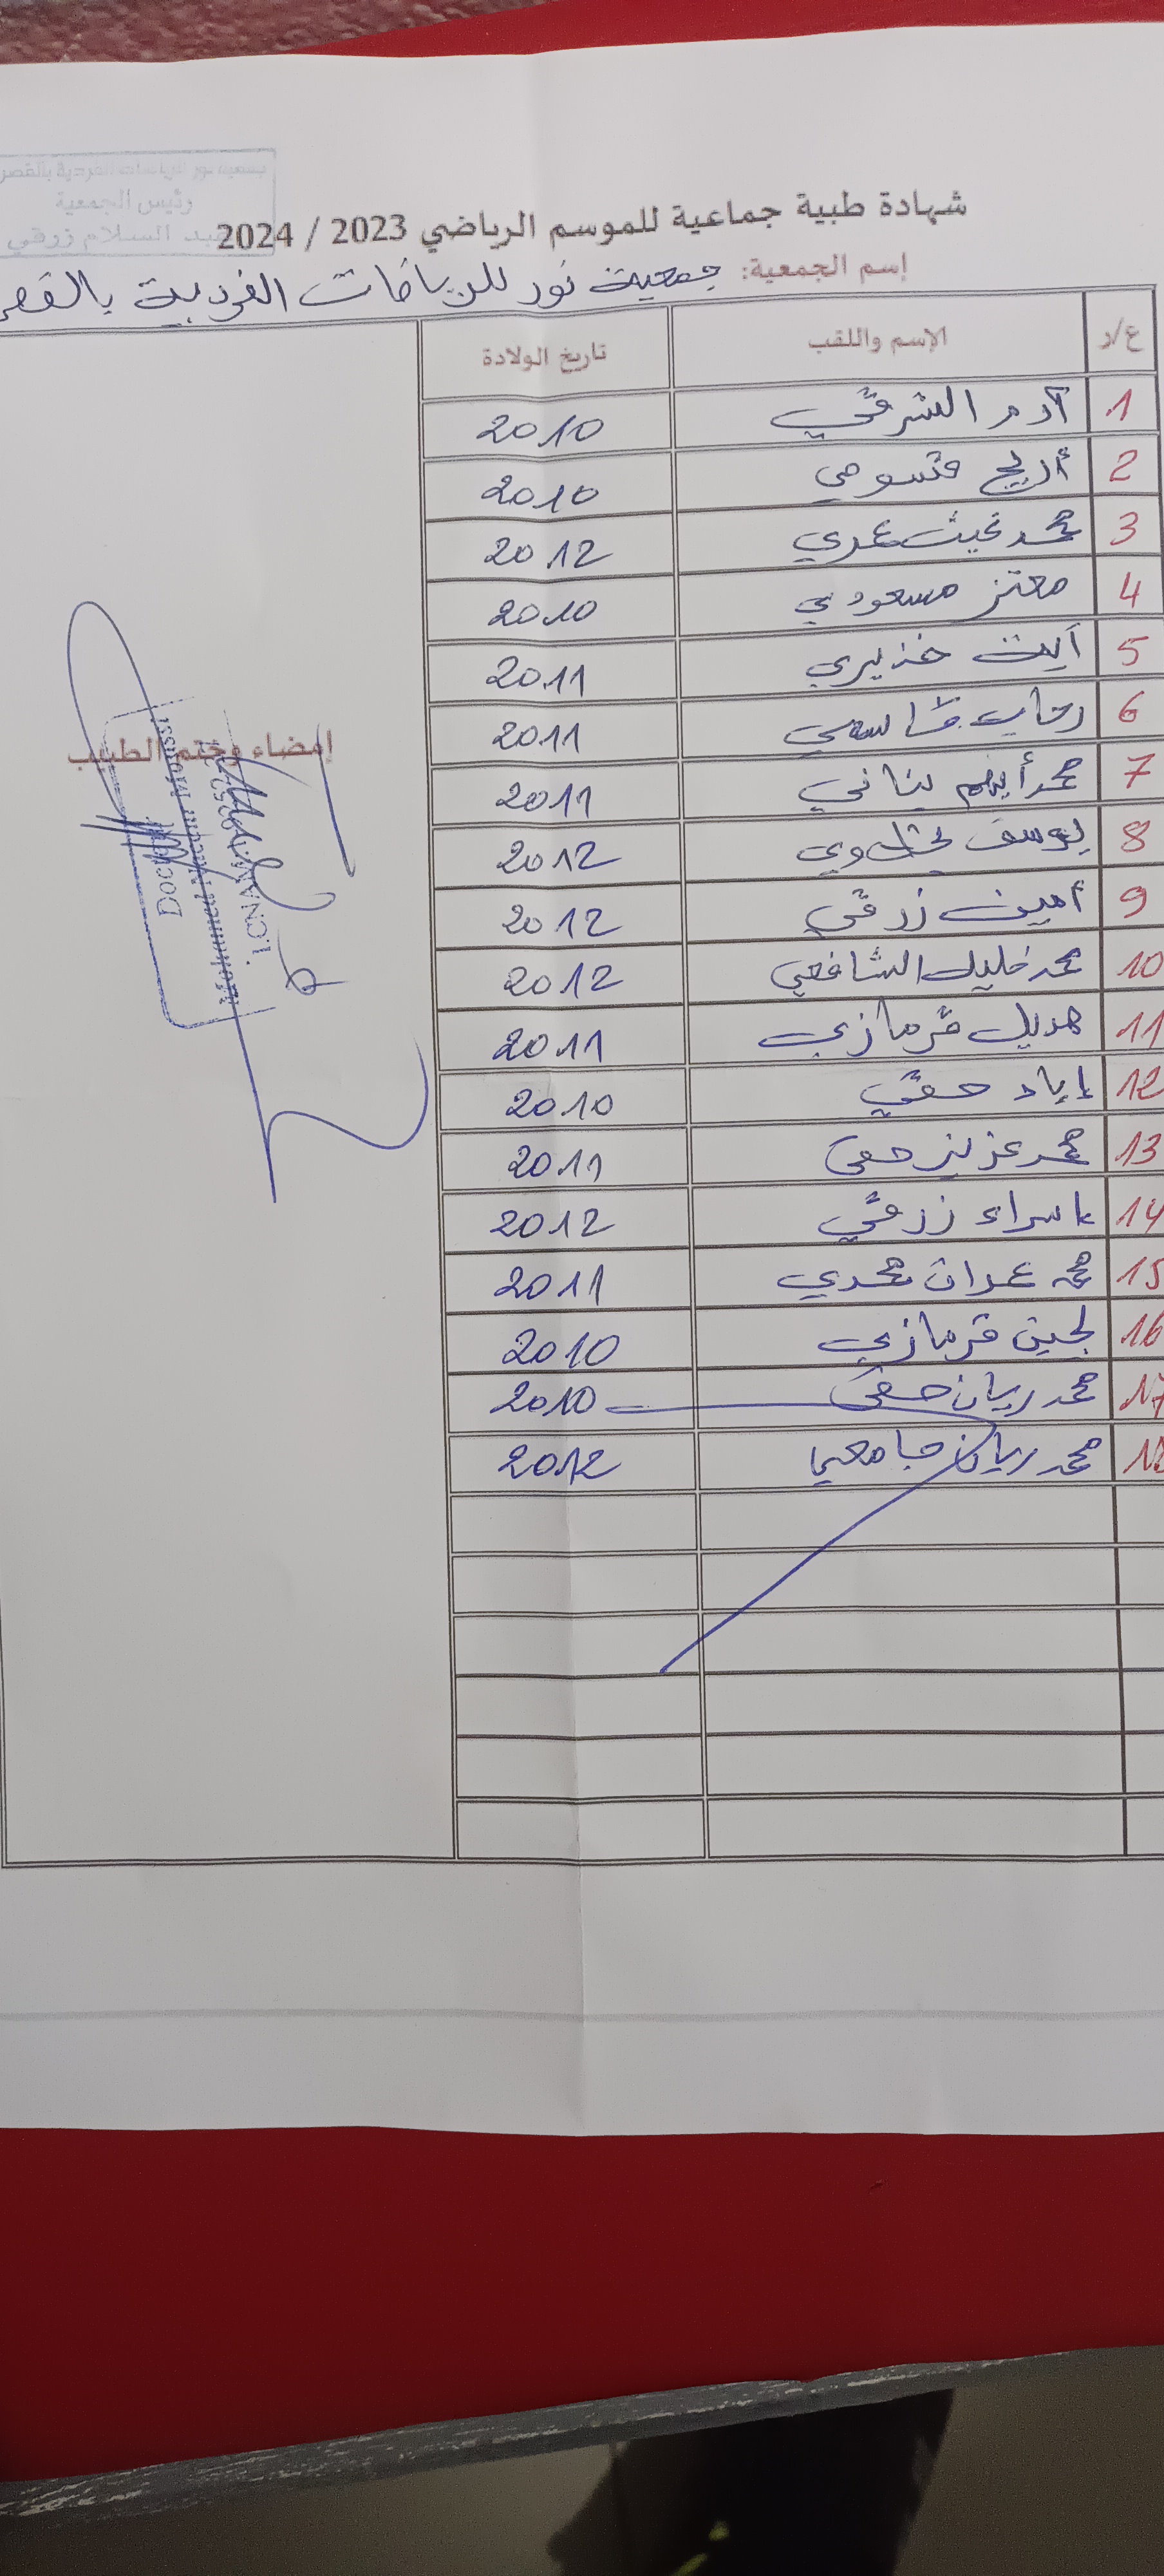 جمعية نور للرياضات الفردية بالقصر
رئيس الجمعية
عبد السلام زرقي
شهادة طبية جماعية للموسم الرياضي 2023 / 2024
إسم الجمعية: جمعية نور للرياضات الفردية بالقصر
ع/د الإسم واللقب تاريخ الولادة
1 آدم الشرقي 2010
2 أريج قسومي 2010
3 محمد غيث عمري 2012
4 معتز مسعودي 2010
5 آيت خذيري 2011
6 رحاب قاسمي 2011
7 محمد أيهم بناني 2011
8 يوسف 2012
9 أمين زرقي 2012
10 محمد خليل الشافعي 2012
11 هديل قرمازي 2011
12 إياد حقي 2010
13 محمد عزيز حقي 2011
14 إسراء زرقي 2012
15 محمد عمران محمدي 2011
16 لجين قرمازي 2010
17 محمد ريان حقي 2010
18 محمد ريان جامعي 2012
إمضاء وختم الطبيب
Docteur
Mohamed